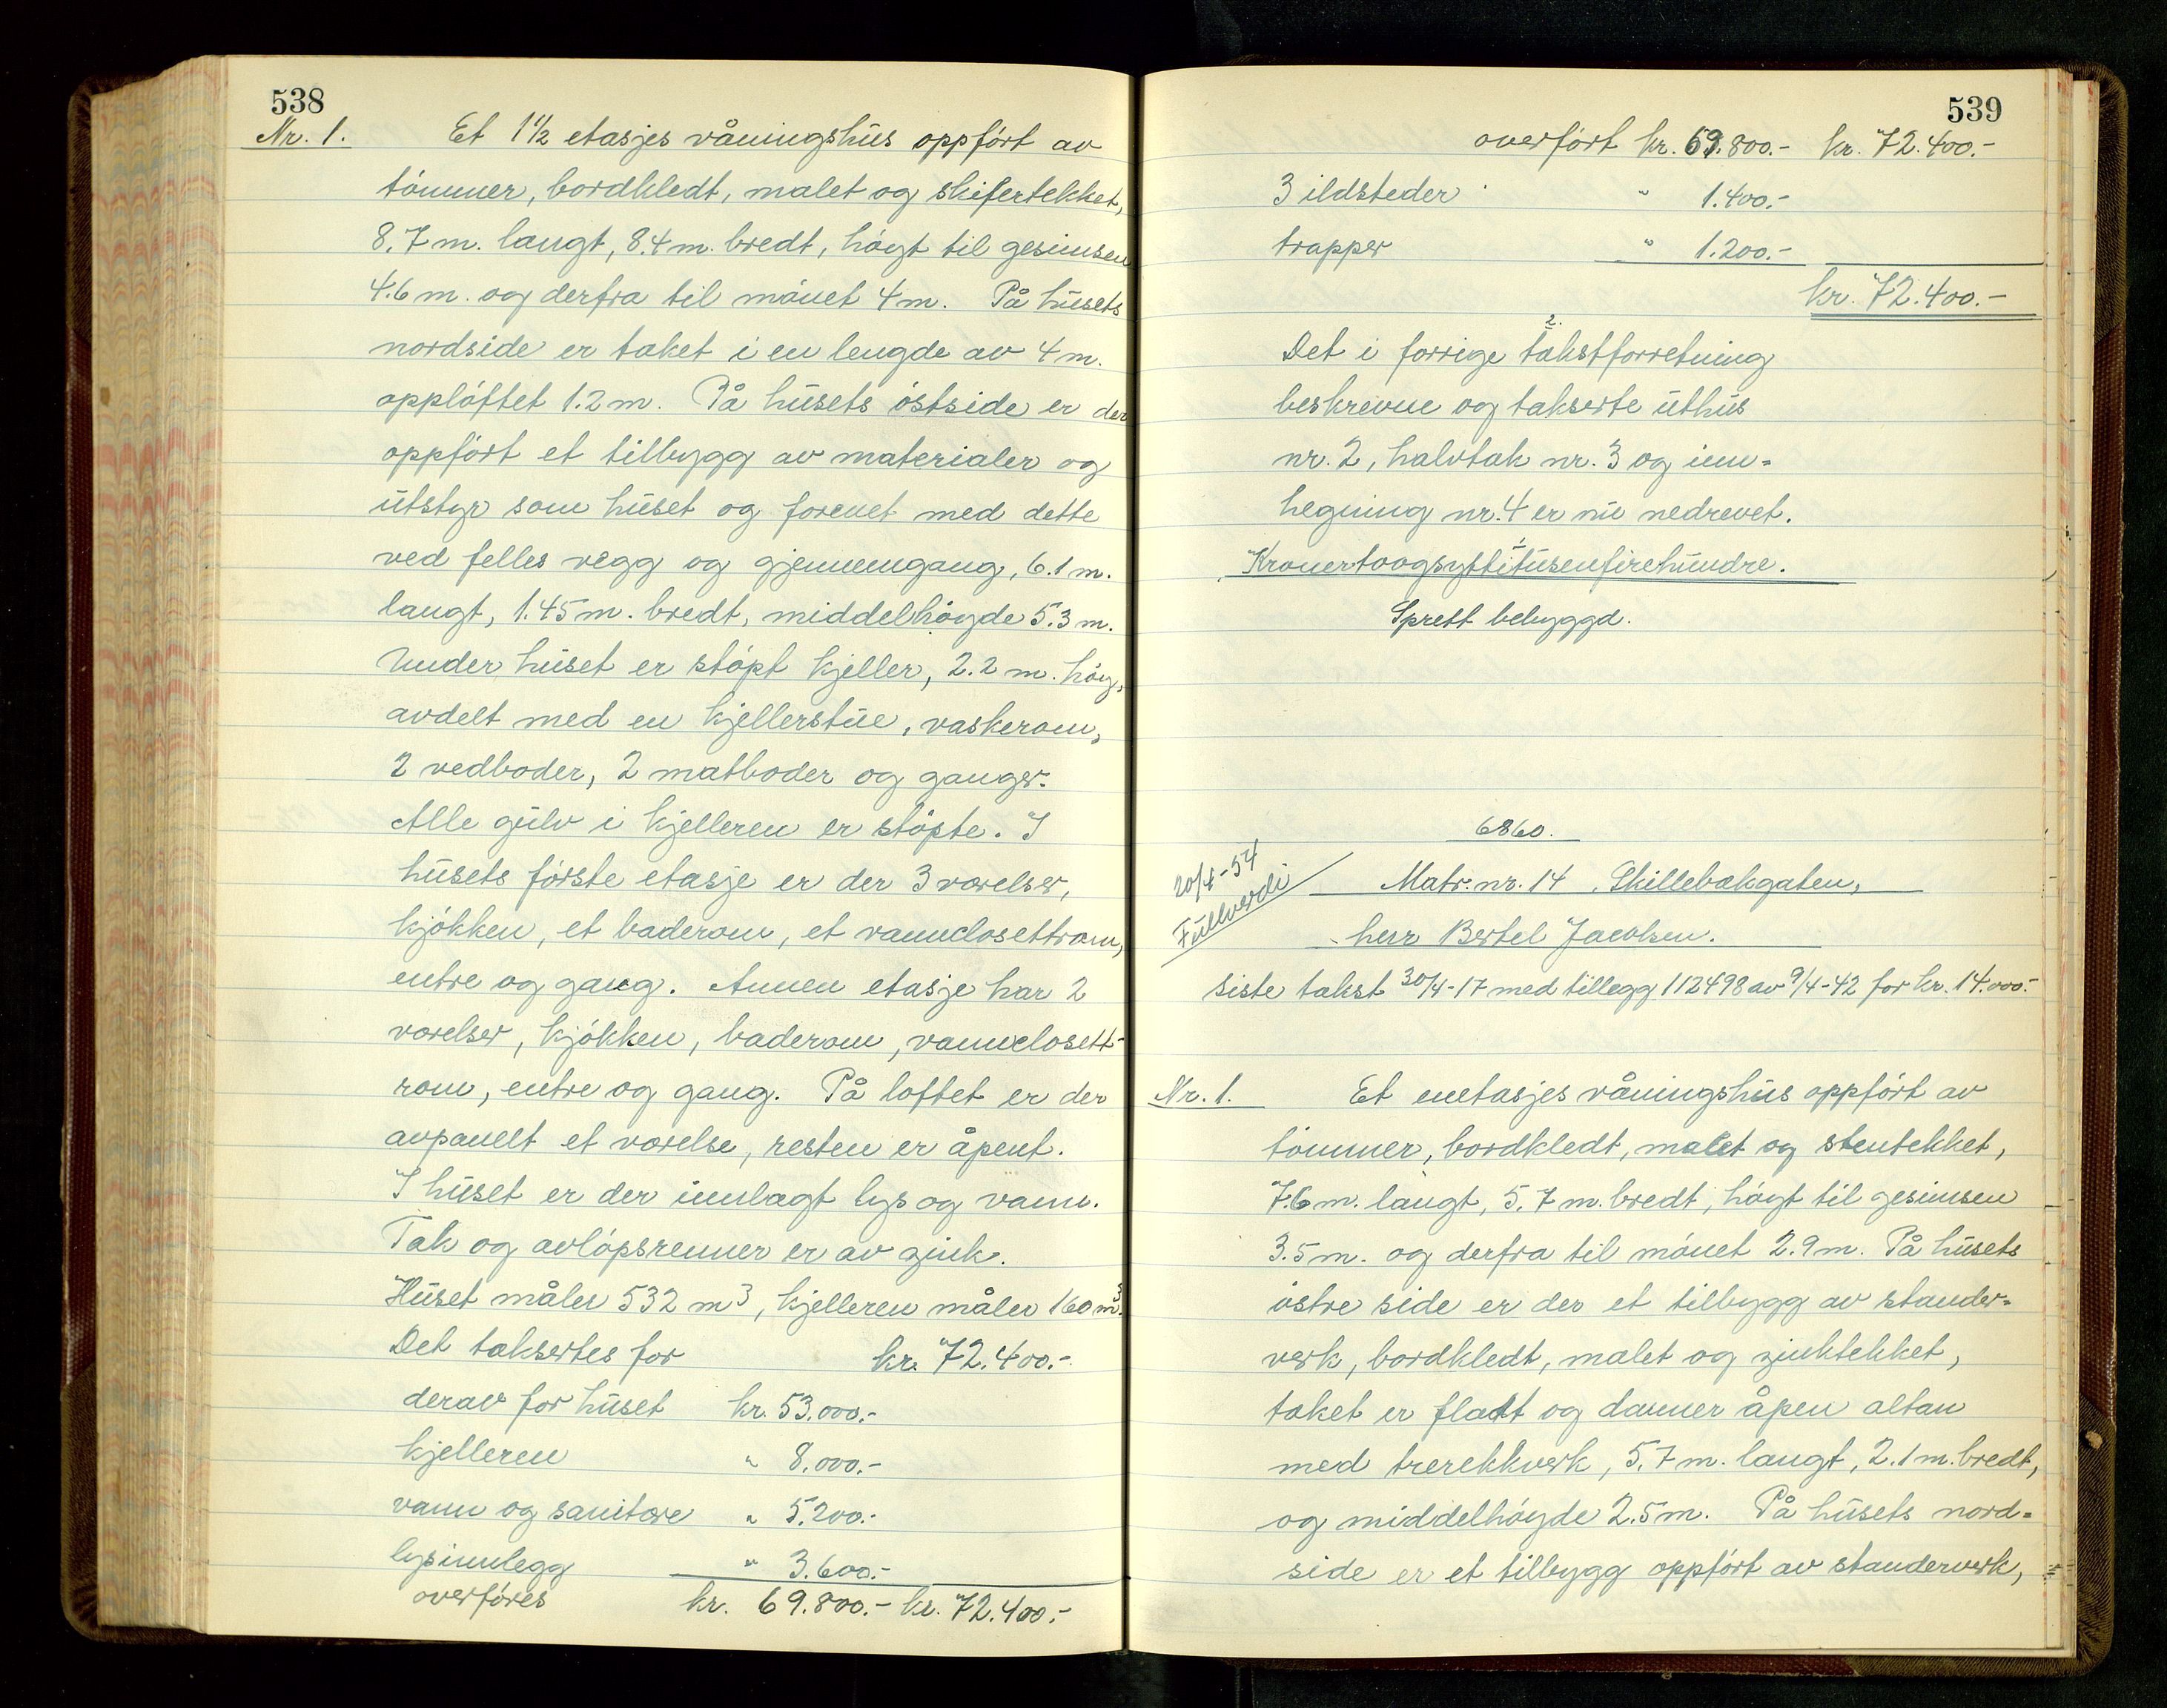 538
Nr. 1. Et 1 1/2 etasjes våningshus oppført av
tømmer, bordkledt, malet og skifertekket,
8.7 m. langt, 8.4 m. bredt, høgt til gesimsen
4.6 m. og derfra til mønet 4 m. På husets
nordside er taket i en lengde av 4 m.
oppløftet 1.2 m. På husets østside er der
oppført et tilbygg av materialer og
utstyr som huset og forenet med dette
ved felles vegg og gjennemgang, 6.1 m.
langt, 1.45 m. bredt, middelhøgde 5.3 m.
Under huset er støpt kjeller, 2.2 m. høg,
avdelt med en kjellerstue, vaskerom,
2 vedboder, 2 matboder og ganger.
Alle gulv i kjelleren er støpte. I
husets første etasje er der 3 værelser,
kjøkken, et baderom, et vannclosettrom,
entre og gang. Annen etasje har 2
værelser, kjøkken, baderom, vannclosett-
rom, entre og gang. På loftet er der
avpanelt et værelse, resten er åpent.
I huset er der innlagt lys og vann.
Tak og avløpsrenner er av zink.
Huset måler 532 m3, kjelleren måler 160 m3.
Det taksertes for kr. 72.400.-
derav for huset kr. 53.000.-
kjelleren " 8.000.-
vann og sanitære " 5.200.-
lysinnlegg " 3.600.-
overføres kr. 69.800.- kr. 72.400.-
539
overført kr. 69.800.- kr. 72.400.-
3 ildsteder " 1.400.-
trapper " 1.200.-
kr. 72.400.-
2.
Det i forrige takstforretning
beskrevne og takserte uthus
nr. 2, halvtak nr. 3 og inn=
hegning nr. 4 er nu nedrevet.
Kronertoogsyttitusenfirehundre.
Sprett bebyggd.
6860.
20/4-54
Fullverdi
Matr. nr. 14, Skillebækgaten,
herr Bertel Jacobsen.
siste takst 30/4-17 med tillegg 112498 av 9/4-42 for kr. 14.000.-
Nr. 1. Et enetasjes våningshus oppført av
tømmer, bordkledt, malet og stentekket,
7.6 m. langt, 5.7 m. bredt, høgt til gesimsen
3.5 m. og derfra til mønet 2.9 m. På husets
østre side er der et tilbygg av stander=
verk, bordkledt, malet og zinktekket,
taket er flatt og danner åpen altan
med trerekkverk, 5.7 m. langt, 2.1 m. bredt,
og middelhøgde 2.5 m. På husets nord=
side er et tilbygg oppført av standerverk,